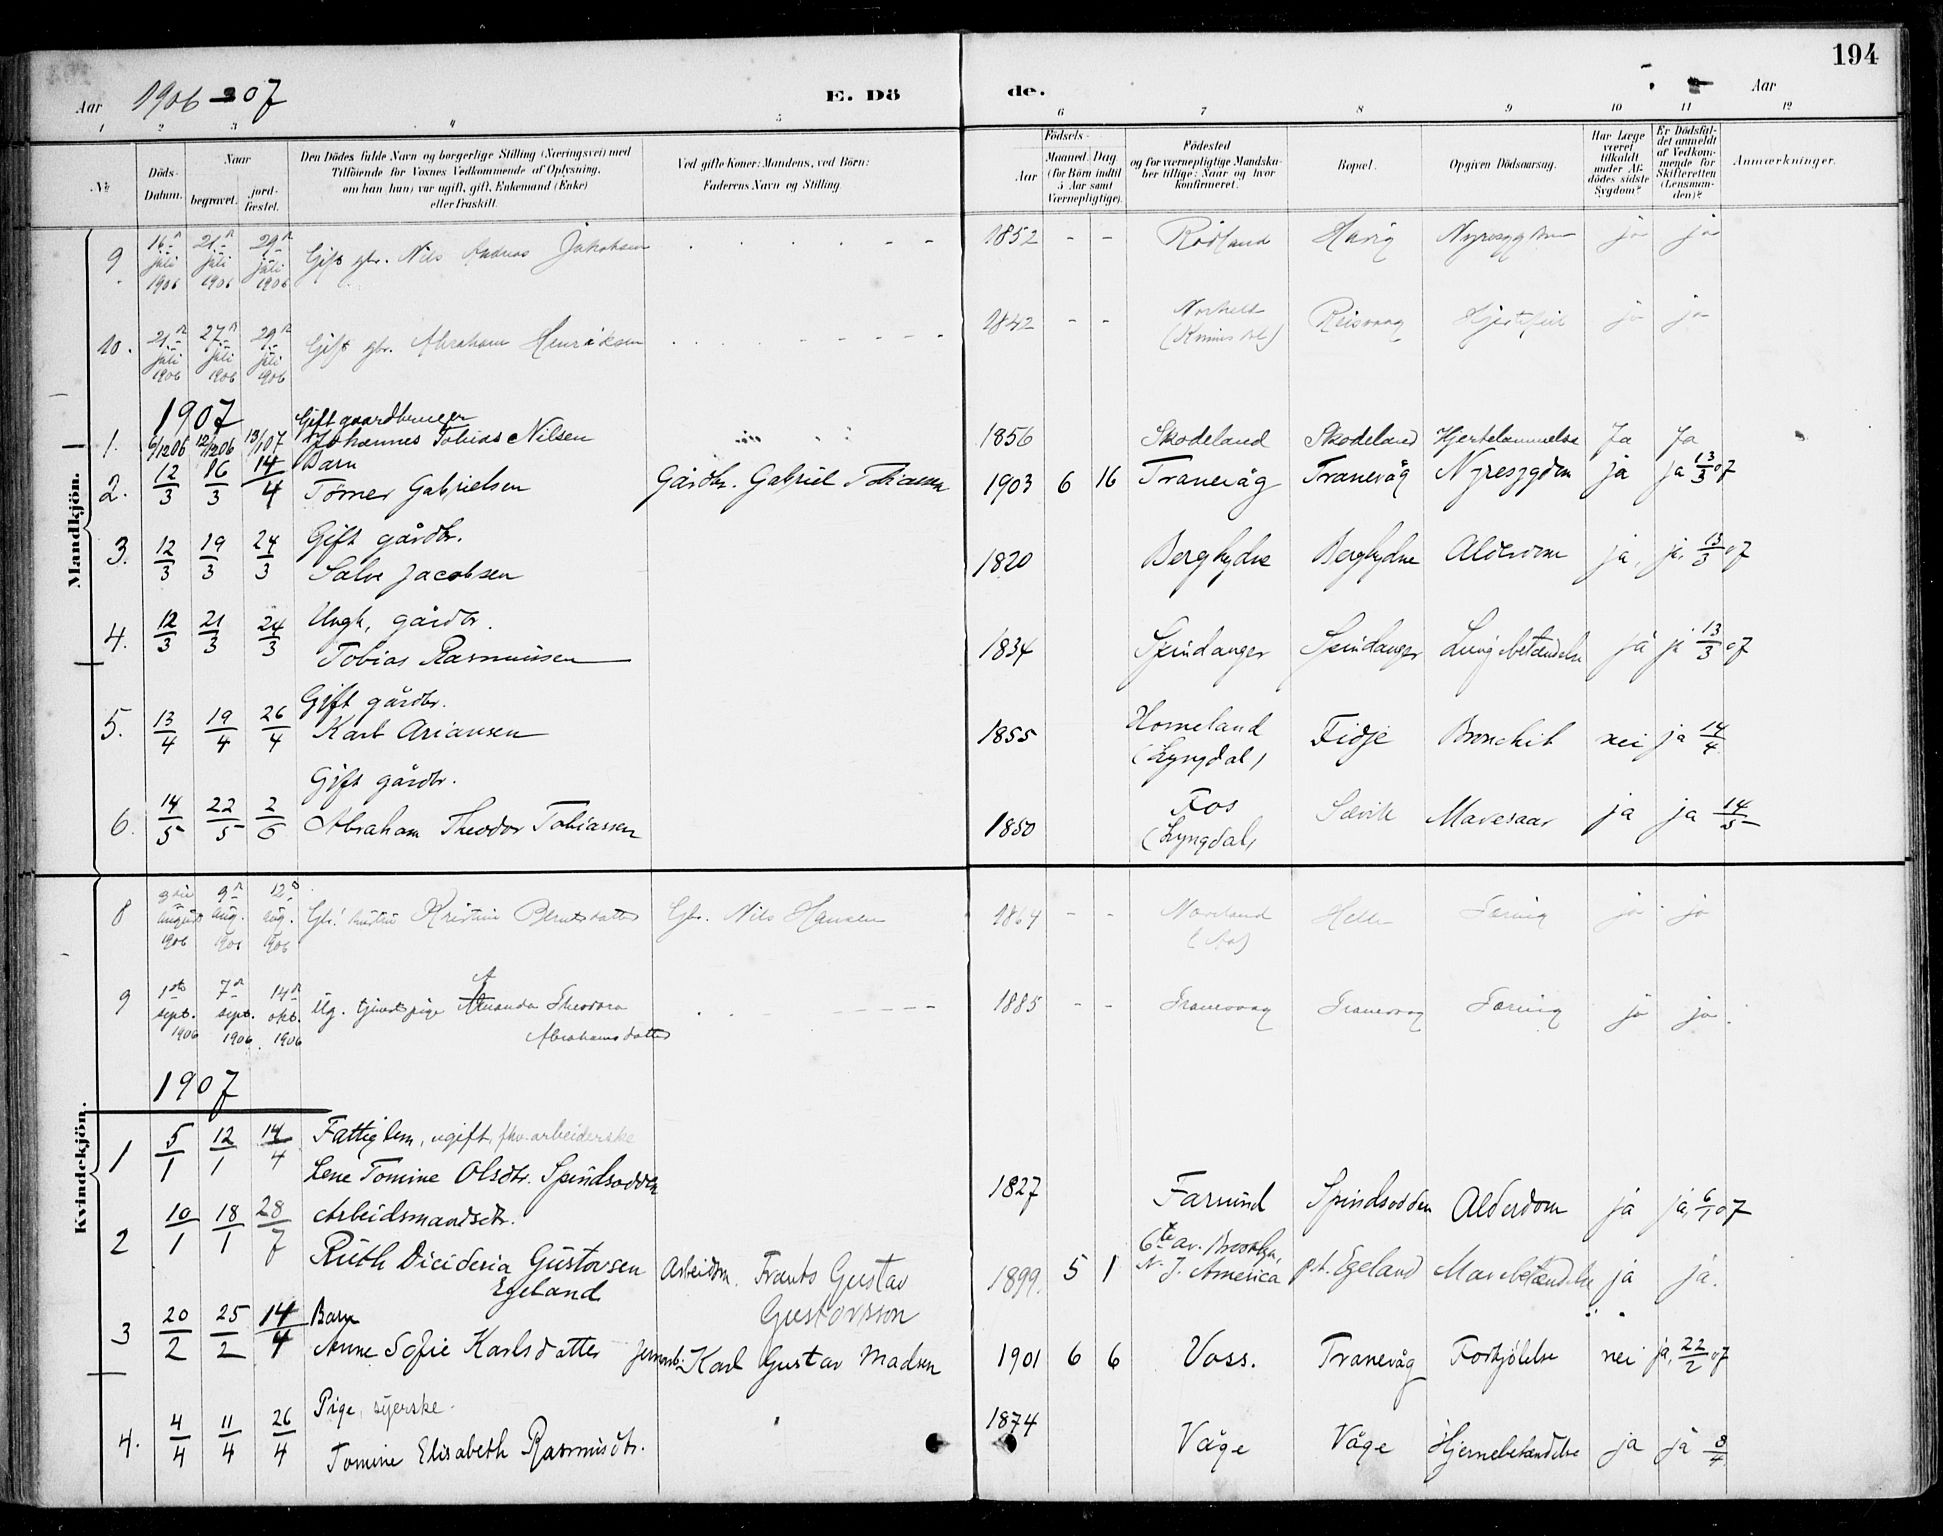 194
Aar 1906-07
E. Dö de.
Aar
1 2 3 4 5 6 7 8 9 10 11 12
№
Döds-Datum.
Naar begravet. jord-fæstet.
Den Dödes fulde Navn og borgerlige Stilling (Næringsvei) med Tilföiende for Voxnes Vedkommende af Oplysning, om han (hun) var ugift, gift, Enkemand (Enke) eller fraskilt.
Ved gifte Koner: Mandens, ved Börn: Faderens Navn og Stilling.
Födsels-
Aar Maaned. Dag. (for Börn indtil 5 Aar samt Værnepligtige).
Födested og for værnepligtige Mandskaber tillige: Naar og hvor konfirmeret.
Bopæl.
Opgiven Dödsaarsag.
Har Læge været tilkaldt under Afdödes sidste Sygdom?
Er Dödsfaldet anmeldt af Vedkommende for Skifteretten (Lensmanden)?
Anmærkninger.
Mandkjön.
9 16 juli 1906 21 juli 1906 29 juli 1906 Gift gbr. Nils Andreas Jakobsen 1852 - - Rödland Havig Nyresygdom ja ja
10. 21 juli 1906 27 juli 1906 29 juli 1906 Gift gbr. Abraham Henriksen 1842 - - (Kvinesdal) Hjertefeil ja ja
1907
Gift gaardbruger
1. 6/12 06 12/12 06 13/1 07 Johannes Tobias Nilsen 1856 Skodeland Skodeland Hjertelammelse Ja Ja
Barn
2. 12/3 16/3 14/4 Törner Gabrielsen Gårdbr. Gabriel Tobiassen 1903 6 16 Tranevåg Tranevåg Nyresygdom ja ja 13/3 07
Gift gårdbr.
3. 12/3 19/3 24/3 Salve Jacobsen 1820 Berghydne Berghydne Alderdom ja, ja, 13/3 07
Ungk, gårdbr.
4. 12/3 21/3 24/3 Tobias Rasmussen 1834 Spindanger Spindanger Lungebetændelse ja ja 13/3 07
Gift gårdbr.
5. 13/4 19/4 26/4 Karl Ariansen 1855 Homeland (Lyngdal) Fidje Bronchit nei ja 14/4
Gift gårdbr.
6. 14/5 22/5 2/6 Abraham Theodor Tobiassen 1850 Fos (Lyngdal) Sævik Mavesaar ja ja 14/5
Kvindekjön.
8 3die august 1906 9 aug. 1906 12 aug. 1906 Gbr. hustru Kristine Berntsdatter Gbr. Nils Hansen 1864 - - Heller Tæring ja ja
9 1ste sept. 1906 7 sept. 1906 14 okt. 1906 Ug. tjenestpige Amanda Theodora Abrahamsdatter 1885 - - Tranevaag Tranevaag Tæring ja ja.
1907
Fattiglem, ugift, fhv. arbeiderske
1 5/1 12/1 14/4 Lene Tomine Olsdtr. Spindsodden 1827 Farsund Spindsodden Alderdom ja ja, 6/1 07
Arbeidsmandsdtr.
2 10/1 18/1 28/7 Ruth Dicideria Gustovsen Egeland Arbeidsm. Frants Gustav Gustovsson 1899. 5 1 6te av. Brooklyn, N. J. America p.t. Egeland Mavebetændelse ja ja.
Barn
3 20/2 25/2 14/4 Anne Sofie Karlsdatter Jernarb: Karl Gustav Madsen 1901 6 6 Voss. Tranevåg Forkjölelse nei ja, 22/2 07
Pige, syerske.
4. 4/4 11/4 26/4 Tomine Elisabeth Rasmusdtr. 1874 Våge Våge Hjernebetændelse ja ja 8/4